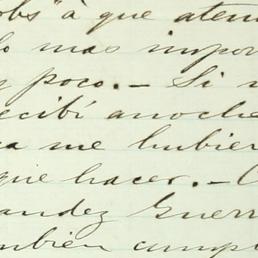 obs" à que aten
lo mas impor
poco. — Si
ecibí anoche
a me hubier
que hacer. — C
andez Guerr
mbién cumpl